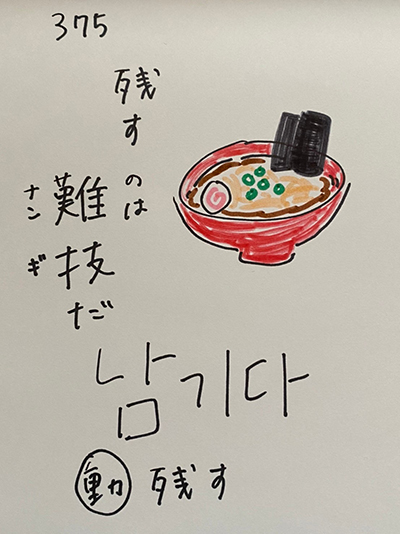 375
残すのは
難技だ
ナンギ
남기다
動 残す